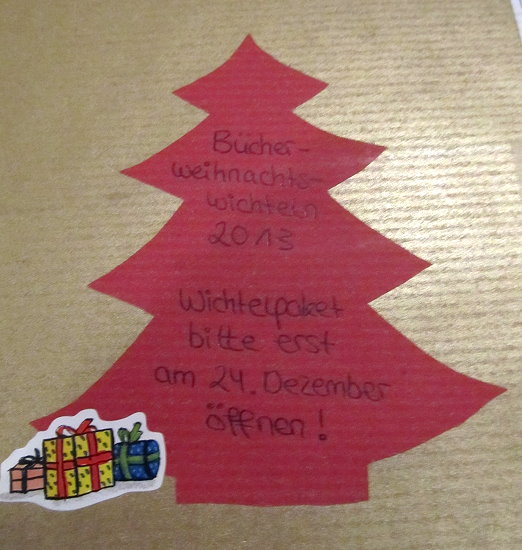 Bücher-
weihnachts-
wichteln
2013
Wichtelpaket
bitte erst
am 24. Dezember
öffnen!